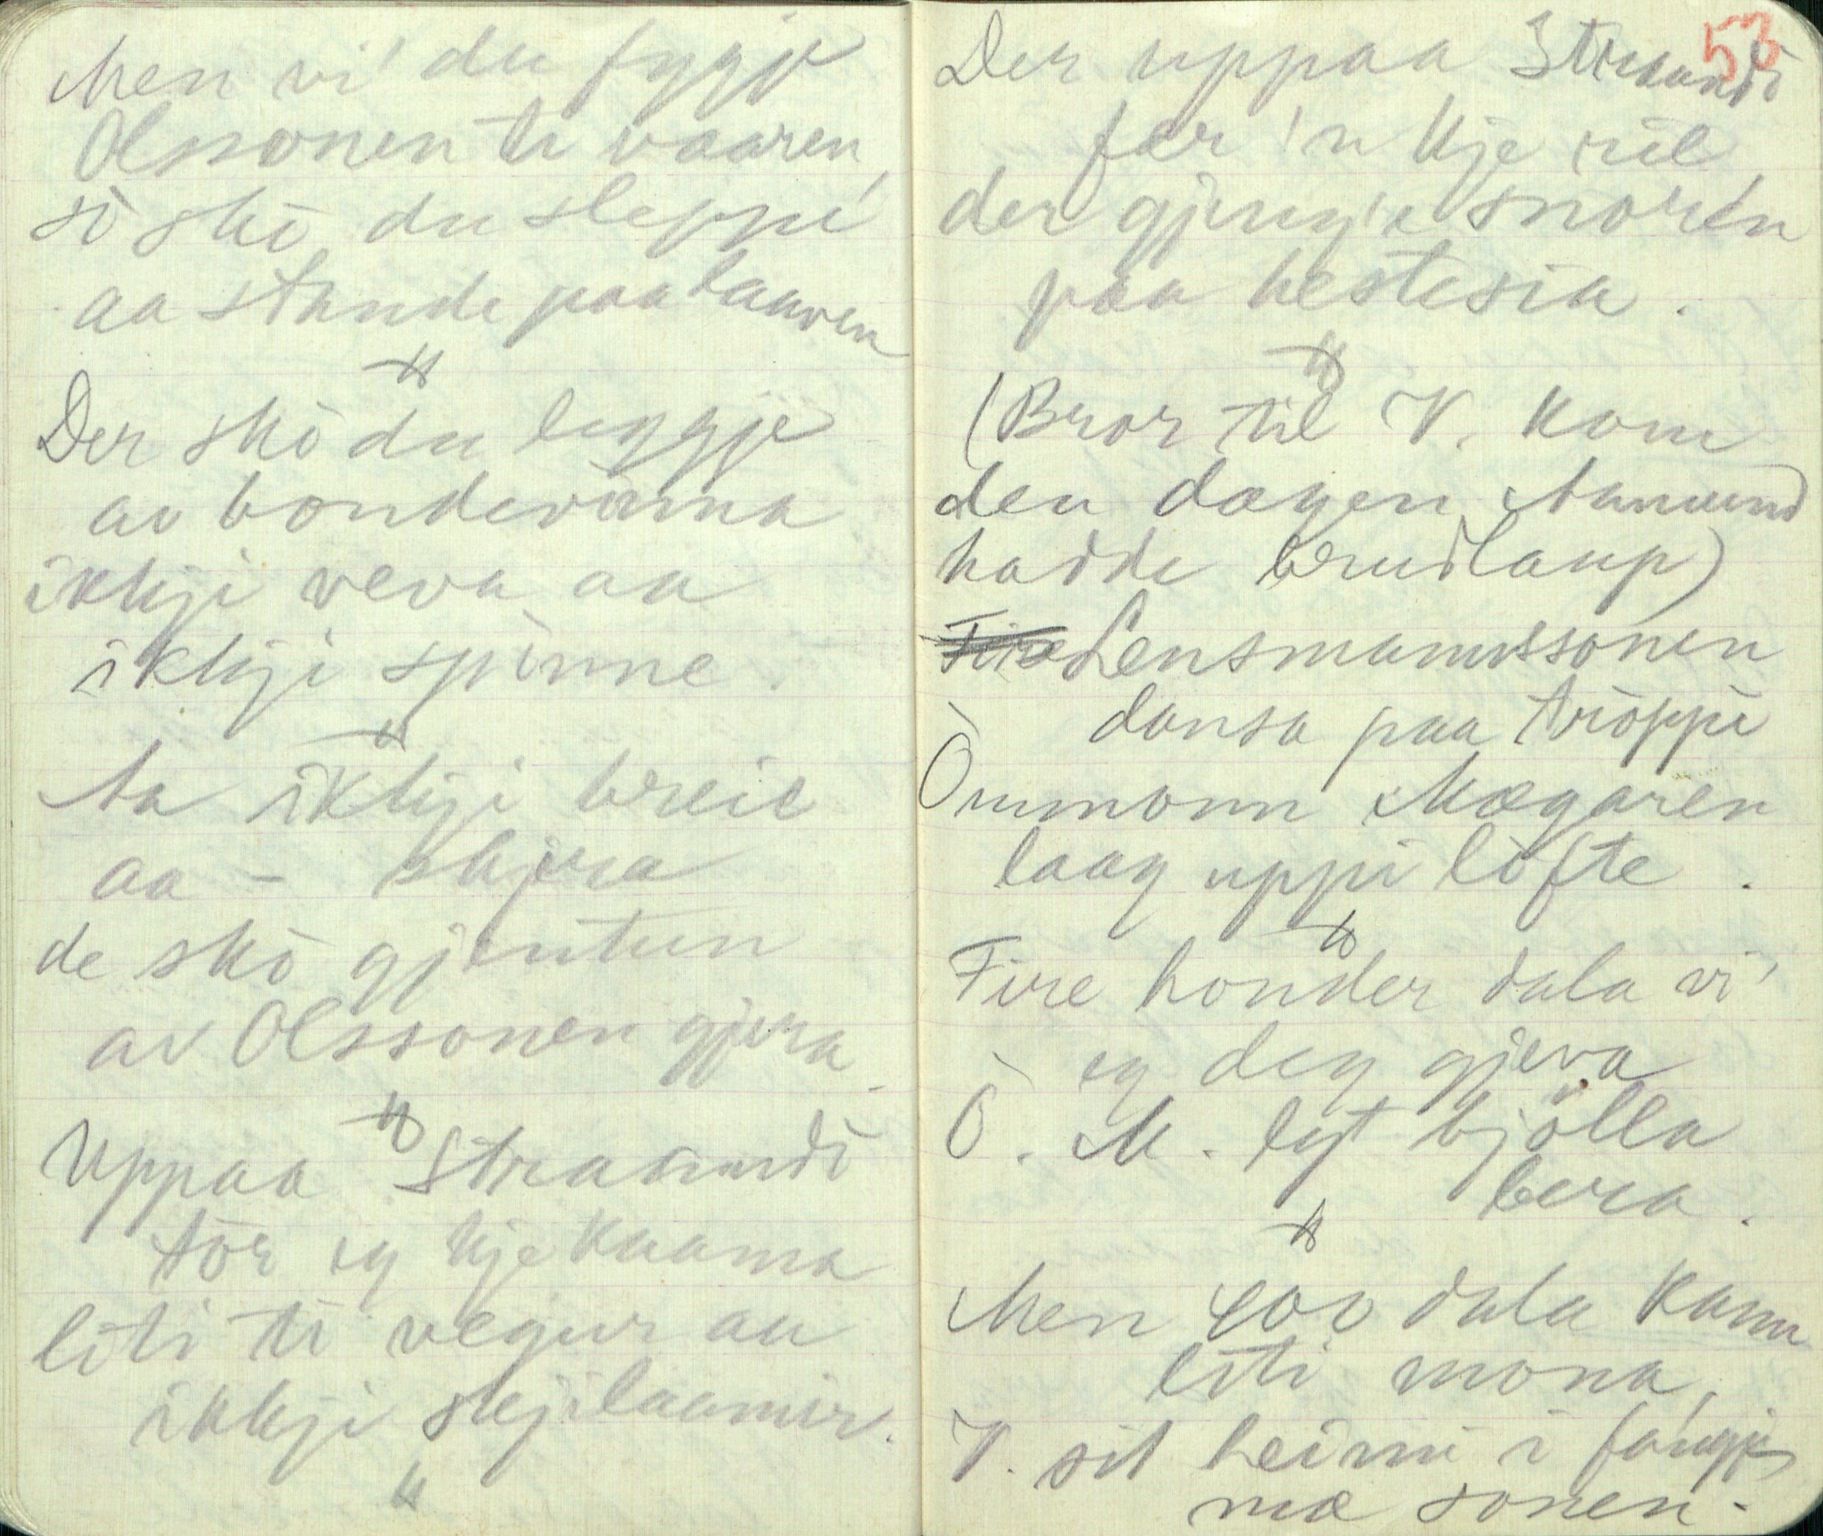 Men vi' du fygje
Olssonen ti vaaren,
sò skò du sleppe'
aa stande paa laaven
"
Der skò du leggje
av bondevònna
ikkji veva aa
ikkji spinne.
"
Aa ikkji breie
aa – skjera
de skò gjentun
av Olssonen gjera.
"
Uppaa Straandi
tòr eg kje kaama
liti ti vegur aa
ikkji skjilaamir.
"
53
Der uppaa Straandi
fær 'n kje sil
der gjeng'e snoren
paa hestesia.
"
(Bror til V. kom
den dagen Aamund
hadde brudlaup)
Fire Lensmannssonen
dansa paa tròppi
Òmmonn Mægaren
laag uppi lòfte.
"
Fire honder dala vi'
eg deg gjeva
Ò. M. lyt bjølla
bera.
"
Men 400 dala kann
liti mona,
V. sit heimi i fangji
mæ sonen.